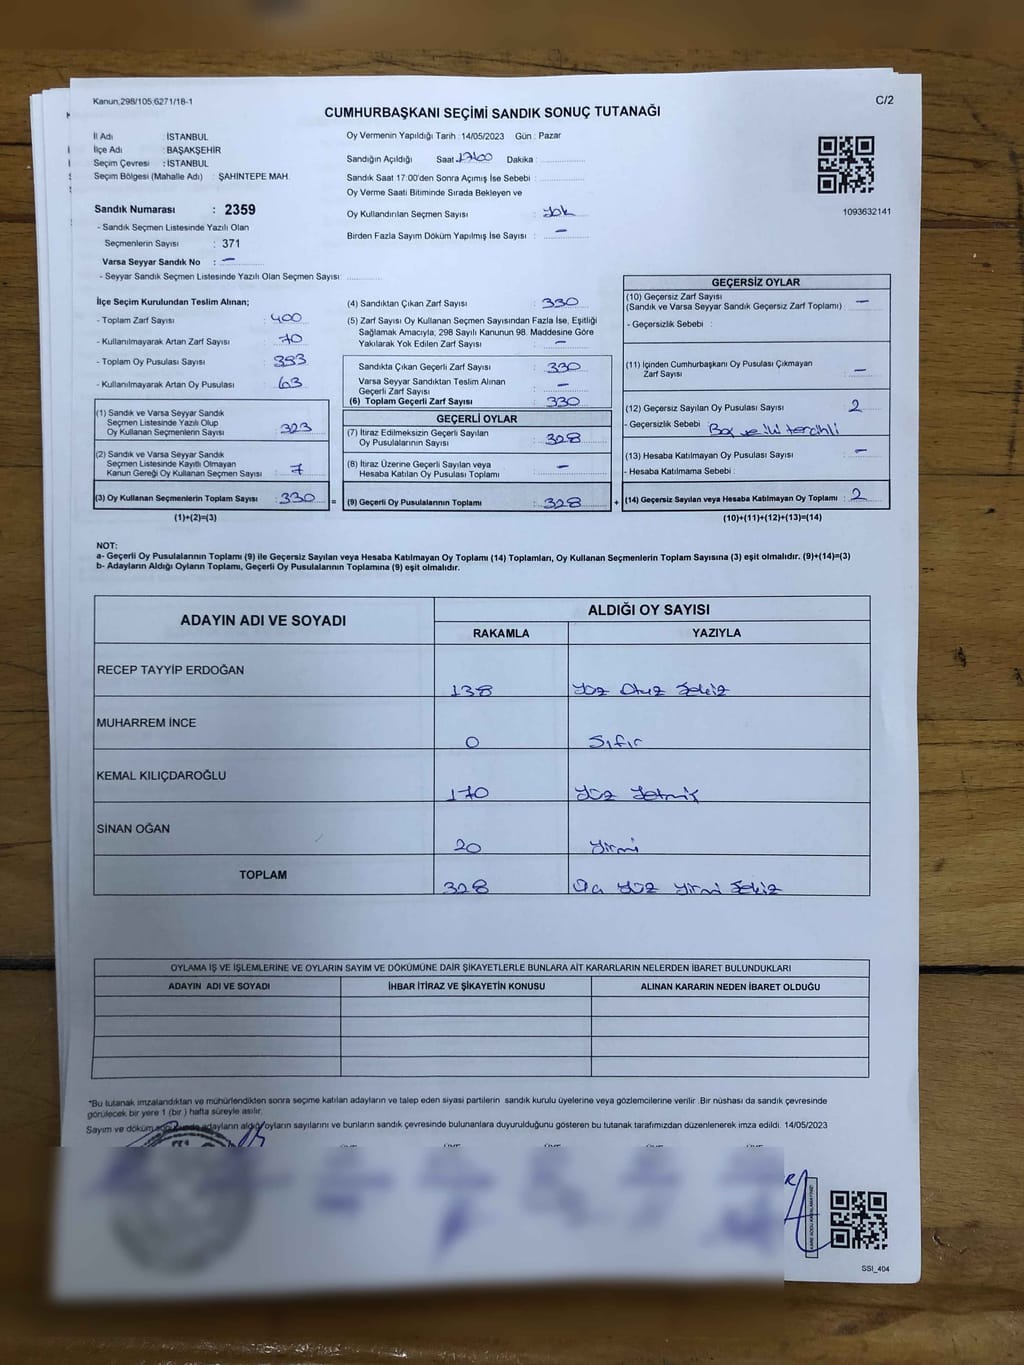 Kanun,298/105;6271/18-1
C/2
CUMHURBAŞKANI SEÇİMİ SANDIK SONUÇ TUTANAĞI
İl Adı : İSTANBUL
İlçe Adı : BAŞAKŞEHİR
Seçim Çevresi : İSTANBUL
Seçim Bölgesi (Mahalle Adı) : ŞAHİNTEPE MAH.
Sandık Numarası : 2359
- Sandık Seçmen Listesinde Yazılı Olan
Seçmenlerin Sayısı : 371
Varsa Seyyar Sandık No : —
- Seyyar Sandık Seçmen Listesinde Yazılı Olan Seçmen Sayısı:
Oy Vermenin Yapıldığı Tarih : 14/05/2023 Gün : Pazar
Sandığın Açıldığı Saat 1700 Dakika :
Sandık Saat 17:00'den Sonra Açımış İse Sebebi :
Oy Verme Saati Bitiminde Sırada Bekleyen ve
Oy Kullandırılan Seçmen Sayısı : Yok
Birden Fazla Sayım Döküm Yapılmış İse Sayısı : —
1093632141
İlçe Seçim Kurulundan Teslim Alınan;
- Toplam Zarf Sayısı : 400
- Kullanılmayarak Artan Zarf Sayısı : 70
- Toplam Oy Pusulası Sayısı : 393
- Kullanılmayarak Artan Oy Pusulası : 63
(1) Sandık ve Varsa Seyyar Sandık
Seçmen Listesinde Yazılı Olup
Oy Kullanan Seçmenlerin Sayısı : 323
(2) Sandık ve Varsa Seyyar Sandık
Seçmen Listesinde Kayıtlı Olmayan
Kanun Gereği Oy Kullanan Seçmen Sayısı : 7
(3) Oy Kullanan Seçmenlerin Toplam Sayısı : 330
(1)+(2)=(3)
=
(4) Sandıktan Çıkan Zarf Sayısı : 330
(5) Zarf Sayısı Oy Kullanan Seçmen Sayısından Fazla İse, Eşitliği
Sağlamak Amacıyla; 298 Sayılı Kanunun 98. Maddesine Göre
Yakılarak Yok Edilen Zarf Sayısı : —
Sandıkta Çıkan Geçerli Zarf Sayısı : 330
Varsa Seyyar Sandıktan Teslim Alınan
Geçerli Zarf Sayısı : —
(6) Toplam Geçerli Zarf Sayısı : 330
GEÇERLİ OYLAR
(7) İtiraz Edilmeksizin Geçerli Sayılan
Oy Pusulalarının Sayısı : 328
(8) İtiraz Üzerine Geçerli Sayılan veya
Hesaba Katılan Oy Pusulası Toplamı : —
(9) Geçerli Oy Pusulalarının Toplamı : 328
+
GEÇERSİZ OYLAR
(10) Geçersiz Zarf Sayısı
(Sandık ve Varsa Seyyar Sandık Geçersiz Zarf Toplamı) : —
- Geçersizlik Sebebi :
(11) İçinden Cumhurbaşkanı Oy Pusulası Çıkmayan
Zarf Sayısı : —
(12) Geçersiz Sayılan Oy Pusulası Sayısı : 2
- Geçersizlik Sebebi : Boş ve iki tercihli
(13) Hesaba Katılmayan Oy Pusulası Sayısı : —
- Hesaba Katılmama Sebebi :
(14) Geçersiz Sayılan veya Hesaba Katılmayan Oy Toplamı : 2
(10)+(11)+(12)+(13)=(14)
NOT:
a- Geçerli Oy Pusulalarının Toplamı (9) ile Geçersiz Sayılan veya Hesaba Katılmayan Oy Toplamı (14) Toplamları, Oy Kullanan Seçmenlerin Toplam Sayısına (3) eşit olmalıdır. (9)+(14)=(3)
b- Adayların Aldığı Oyların Toplamı, Geçerli Oy Pusulalarının Toplamına (9) eşit olmalıdır.
ADAYIN ADI VE SOYADI
ALDIĞI OY SAYISI
RAKAMLA YAZIYLA
RECEP TAYYİP ERDOĞAN 138 Yüz Otuz Sekiz
MUHARREM İNCE 0 Sıfır
KEMAL KILIÇDAROĞLU 170 Yüz Yetmiş
SİNAN OĞAN 20 Yirmi
TOPLAM 328 Üç Yüz Yirmi Sekiz
OYLAMA İŞ VE İŞLEMLERİNE VE OYLARIN SAYIM VE DÖKÜMÜNE DAİR ŞİKAYETLERLE BUNLARA AİT KARARLARIN NELERDEN İBARET BULUNDUKLARI
ADAYIN ADI VE SOYADI İHBAR İTİRAZ VE ŞİKAYETİN KONUSU ALINAN KARARIN NEDEN İBARET OLDUĞU
*Bu tutanak imzalandıktan ve mühürlendikten sonra seçime katılan adayların ve talep eden siyasi partilerin sandık kurulu üyelerine veya gözlemcilerine verilir .Bir nüshası da sandık çevresinde
görülecek bir yere 1 (bir ) hafta süreyle asılır.
Sayım ve döküm adayların aldığı oyların sayılarını ve bunların sandık çevresinde bulunanlara duyurulduğunu gösteren bu tutanak tarafımızdan düzenlenerek imza edildi. 14/05/2023
SSI_404